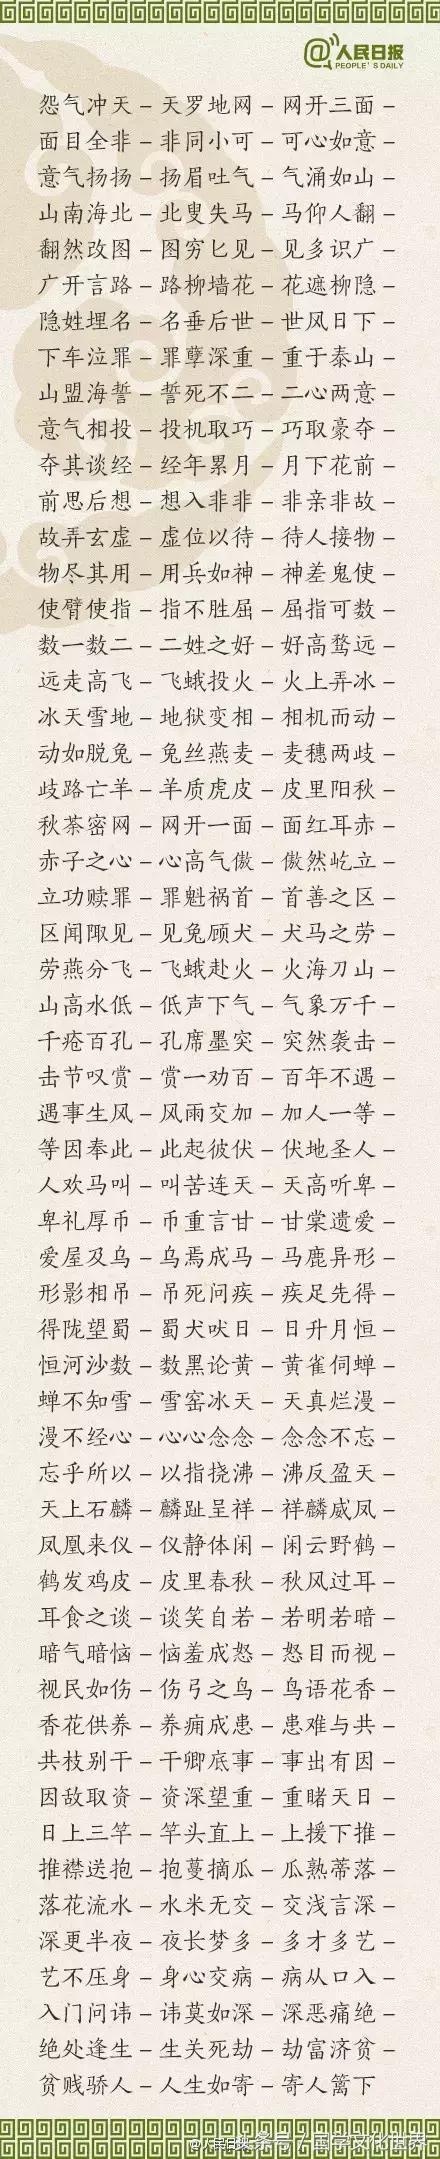 @人民日报
PEOPLE'S DAILY
怨气冲天－天罗地网－网开三面－
面目全非－非同小可－可心如意－
意气扬扬－扬眉吐气－气涌如山－
山南海北－北叟失马－马仰人翻－
翻然改图－图穷匕见－见多识广－
广开言路－路柳墙花－花遮柳隐－
隐姓埋名－名垂后世－世风日下－
下车泣罪－罪孽深重－重于泰山－
山盟海誓－誓死不二－二心两意－
意气相投－投机取巧－巧取豪夺－
夺其谈经－经年累月－月下花前－
前思后想－想入非非－非亲非故－
故弄玄虚－虚位以待－待人接物－
物尽其用－用兵如神－神差鬼使－
使臂使指－指不胜屈－屈指可数－
数一数二－二姓之好－好高骛远－
远走高飞－飞蛾投火－火上弄冰－
冰天雪地－地狱变相－相机而动－
动如脱兔－兔丝燕麦－麦穗两歧－
歧路亡羊－羊质虎皮－皮里阳秋－
秋荼密网－网开一面－面红耳赤－
赤子之心－心高气傲－傲然屹立－
立功赎罪－罪魁祸首－首善之区－
区闻陬见－见兔顾犬－犬马之劳－
劳燕分飞－飞蛾赴火－火海刀山－
山高水低－低声下气－气象万千－
千疮百孔－孔席墨突－突然袭击－
击节叹赏－赏一劝百－百年不遇－
遇事生风－风雨交加－加人一等－
等因奉此－此起彼伏－伏地圣人－
人欢马叫－叫苦连天－天高听卑－
卑礼厚币－币重言甘－甘棠遗爱－
爱屋及乌－乌焉成马－马鹿异形－
形影相吊－吊死问疾－疾足先得－
得陇望蜀－蜀犬吠日－日升月恒－
恒河沙数－数黑论黄－黄雀伺蝉－
蝉不知雪－雪窑冰天－天真烂漫－
漫不经心－心心念念－念念不忘－
忘乎所以－以指挠沸－沸反盈天－
天上石麟－麟趾呈祥－祥麟威凤－
凤凰来仪－仪静体闲－闲云野鹤－
鹤发鸡皮－皮里春秋－秋风过耳－
耳食之谈－谈笑自若－若明若暗－
暗气暗恼－恼羞成怒－怒目而视－
视民如伤－伤弓之鸟－鸟语花香－
香花供养－养痈成患－患难与共－
共枝别干－干卿底事－事出有因－
因敌取资－资深望重－重睹天日－
日上三竿－竿头直上－上援下推－
推襟送抱－抱蔓摘瓜－瓜熟蒂落－
落花流水－水米无交－交浅言深－
深更半夜－夜长梦多－多才多艺－
艺不压身－身心交病－病从口入－
入门问讳－讳莫如深－深恶痛绝－
绝处逢生－生关死劫－劫富济贫－
贫贱骄人－人生如寄－寄人篱下
@人民日报
头条号／国学文化世界